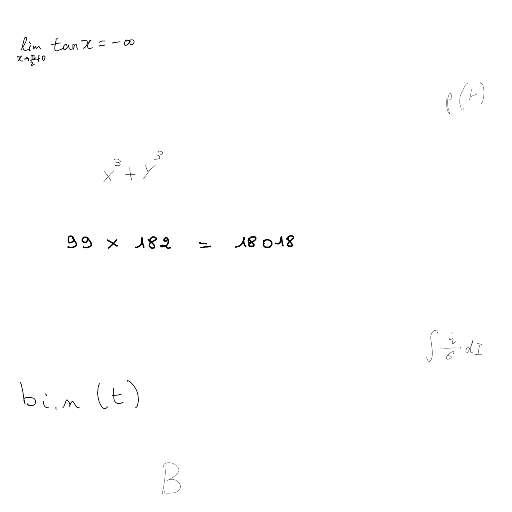 lim_{x→π/2+0} tan x = −∞
p(t)
x³ + y³
99 × 182 = 18018
∫ i/6 dI
b_{i,n}(t)
B